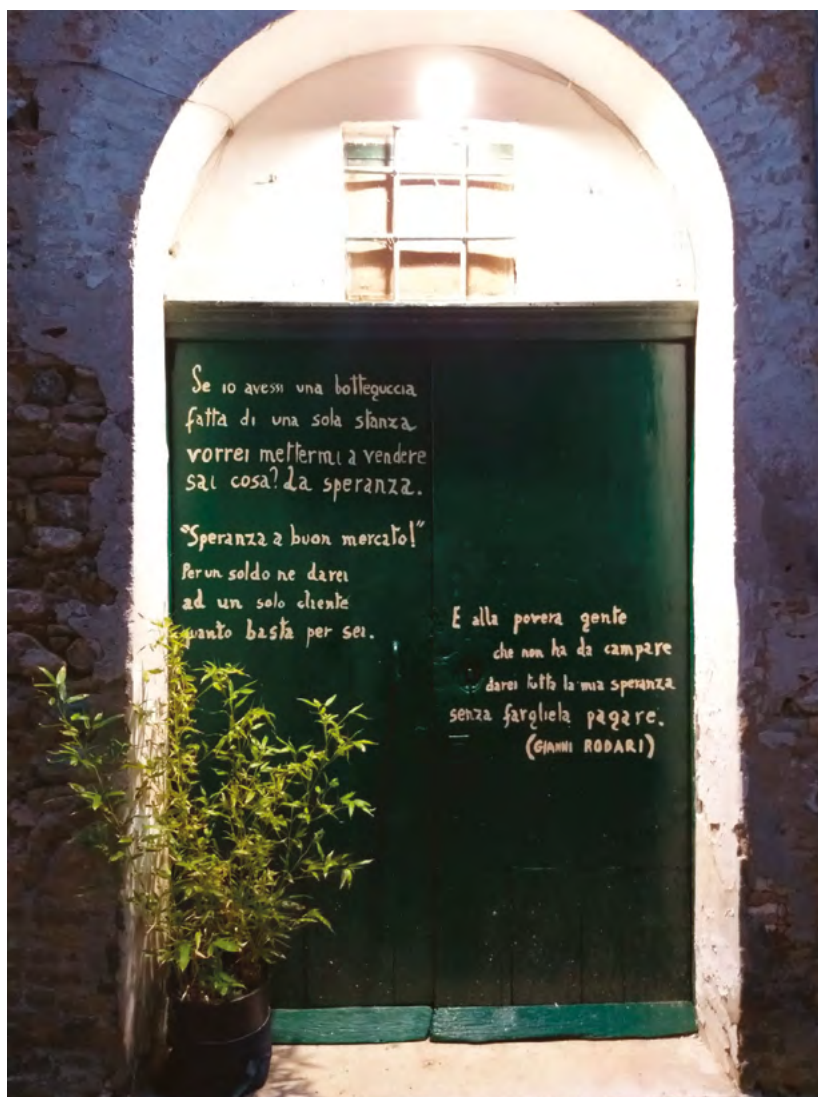 Se io avessi una botteguccia
fatta di una sola stanza
vorrei mettermi a vendere
sai cosa? La speranza.
"Speranza a buon mercato!"
Per un soldo ne darei
ad un solo cliente
quanto basta per sei.
E alla povera gente
che non ha da campare
darei tutta la mia speranza
senza fargliela pagare.
(GIANNI RODARI)